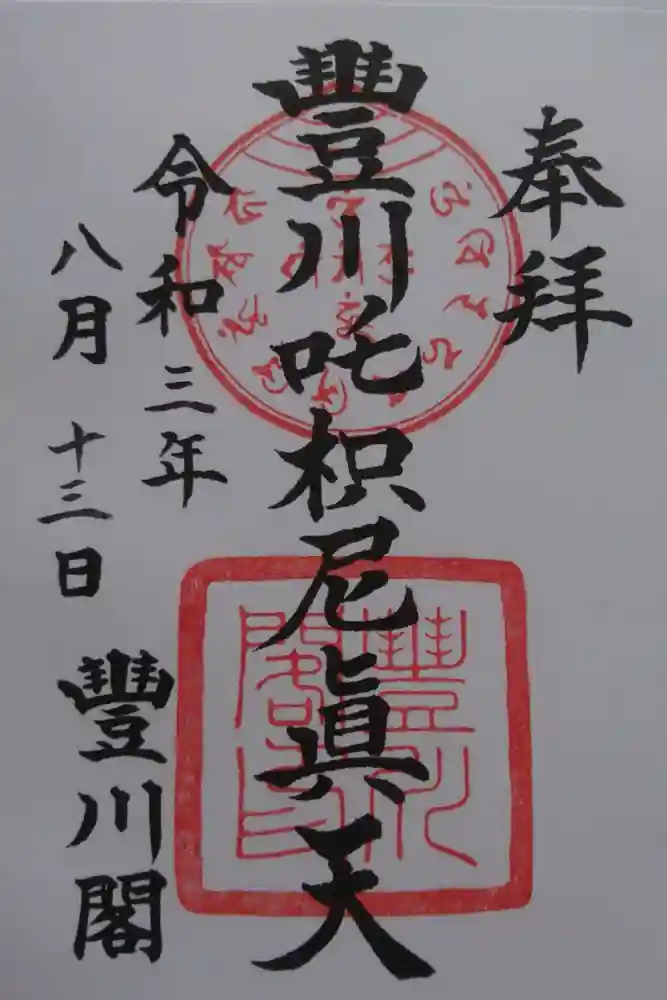 奉拝
豐川吒枳尼眞天
令和三年
八月十三日
豐川閣
豐川
閣印